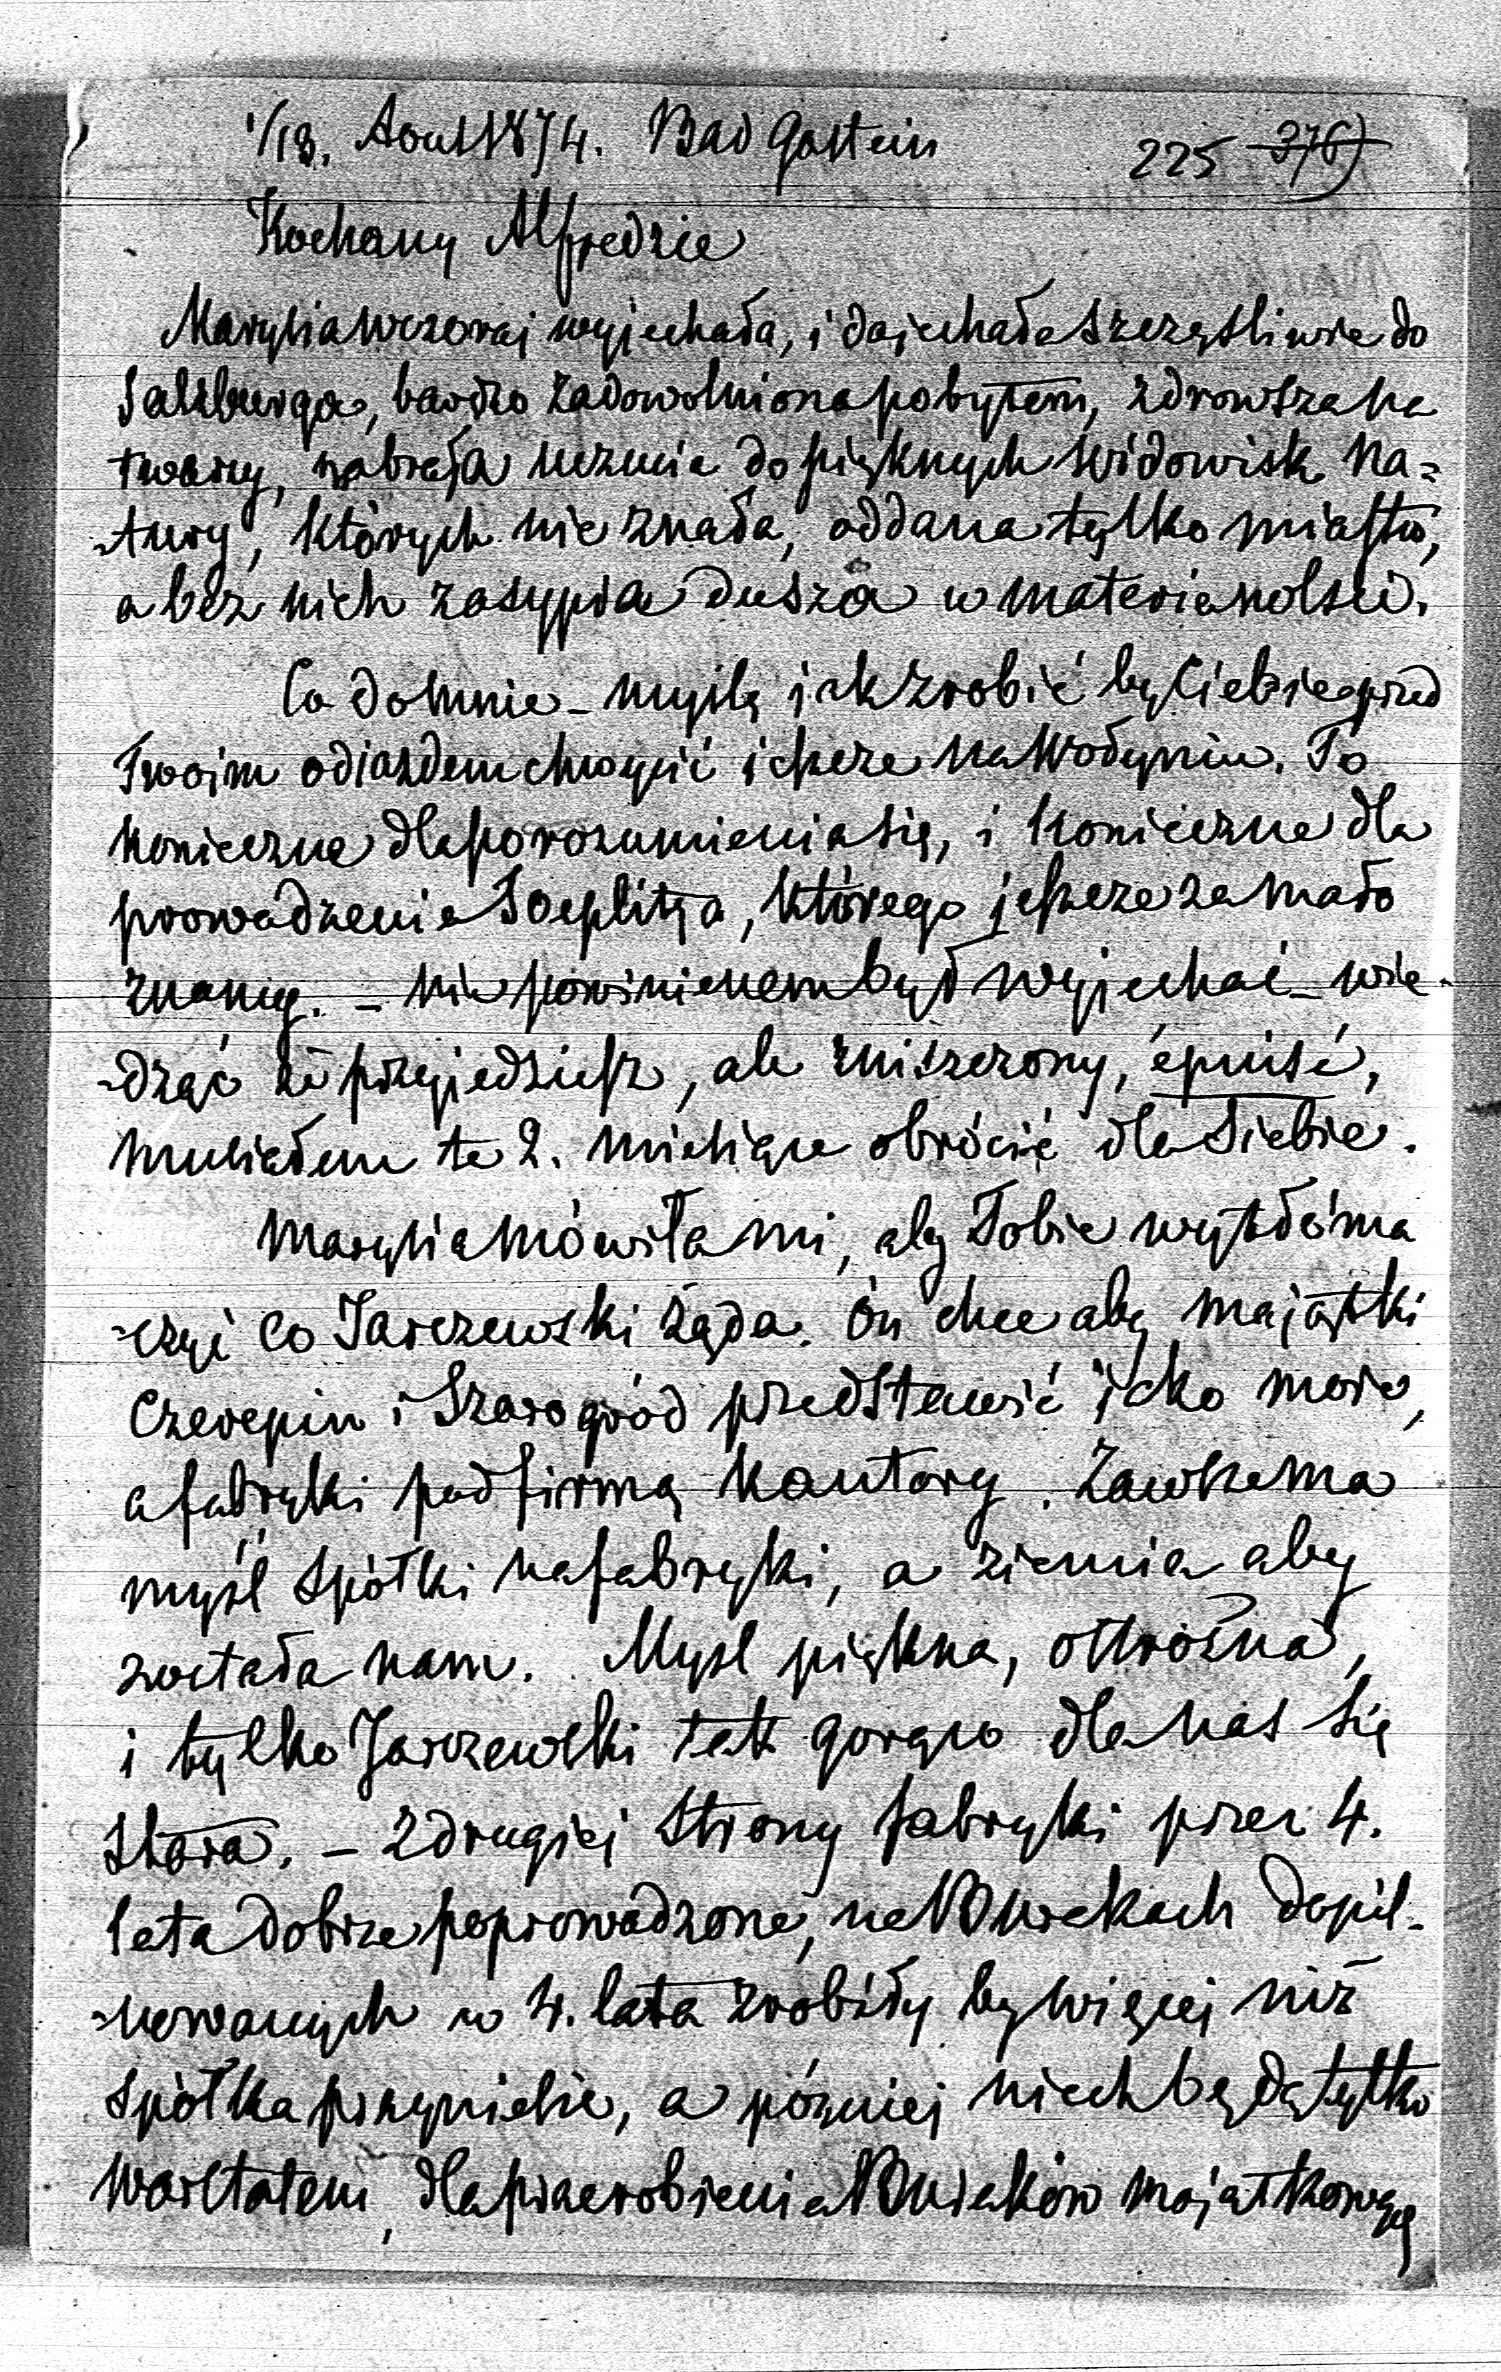 1/13. Aout 1874. Bad Gastein
225 376)
Kochany Alfredzie
Marysia wczoraj wyjechała, i dojechała szczęśliwie do
Salzburga, bardzo zadowolniona pobytem, zdrowsza na
twarzy, nabrała uczucia do pięknych widowisk na=
-tury, których nie znała, oddana tylko miastu,
a bez nich zasypia dusza w materianolsci.
Co do mnie – myślę jak zrobić by Ciebie przed
Twoim odjazdem chwycić jeszcze na Wołyniu. To
konieczne dla porozumienia się, i konieczne dla
prowadzenia Toeplitza, którego jeszcze za mało
znamy. – nie powinienem był wyjechać – wie-
-dząc że przyjedziesz, ale zniszczony, épuisé,
musiałem te 2. miesiące obrócić dla siebie.
Marysia mówiła mi, aby Tobie wytłóma
-czyć co Jarczewski żąda. On chce aby majątki
Czerepin i Szarogród przedstawić jako moje,
a fabryki pod firmą kantory. Zawsze ma
myśl spółki na fabryki, a ziemia aby
została nam. Mysl piękna, ostrożna,
i tylko Jarczewski tak gorąco dla nas się
stara. – Z drugiej strony fabryki przez 4.
lata dobrze poprowadzone, na Burakach dopil-
-nowanych w 4. lata zrobiły by więcej niż
spółka przyniesie, a pózniej niech będą tylko
warstatem, dla przerobienia Buraków majątkowych